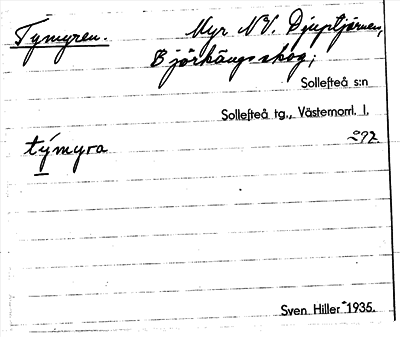 Tymyren. Myr NV. Djuptjärnen,
Björkängs skog;
Sollefteå s:n
Sollefteå tg., Västernorrl. l.
týmyra 292.
Sven Hiller 1935.